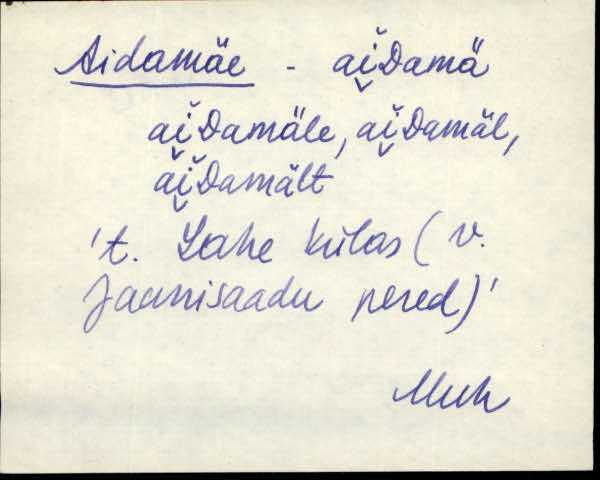 Aidamäe - ai̮Damä
ai̮Damäle, ai̮Damäl,
ai̮Damält
't. Lahe külas (v.
Jaanisaadu pered)'
Muh